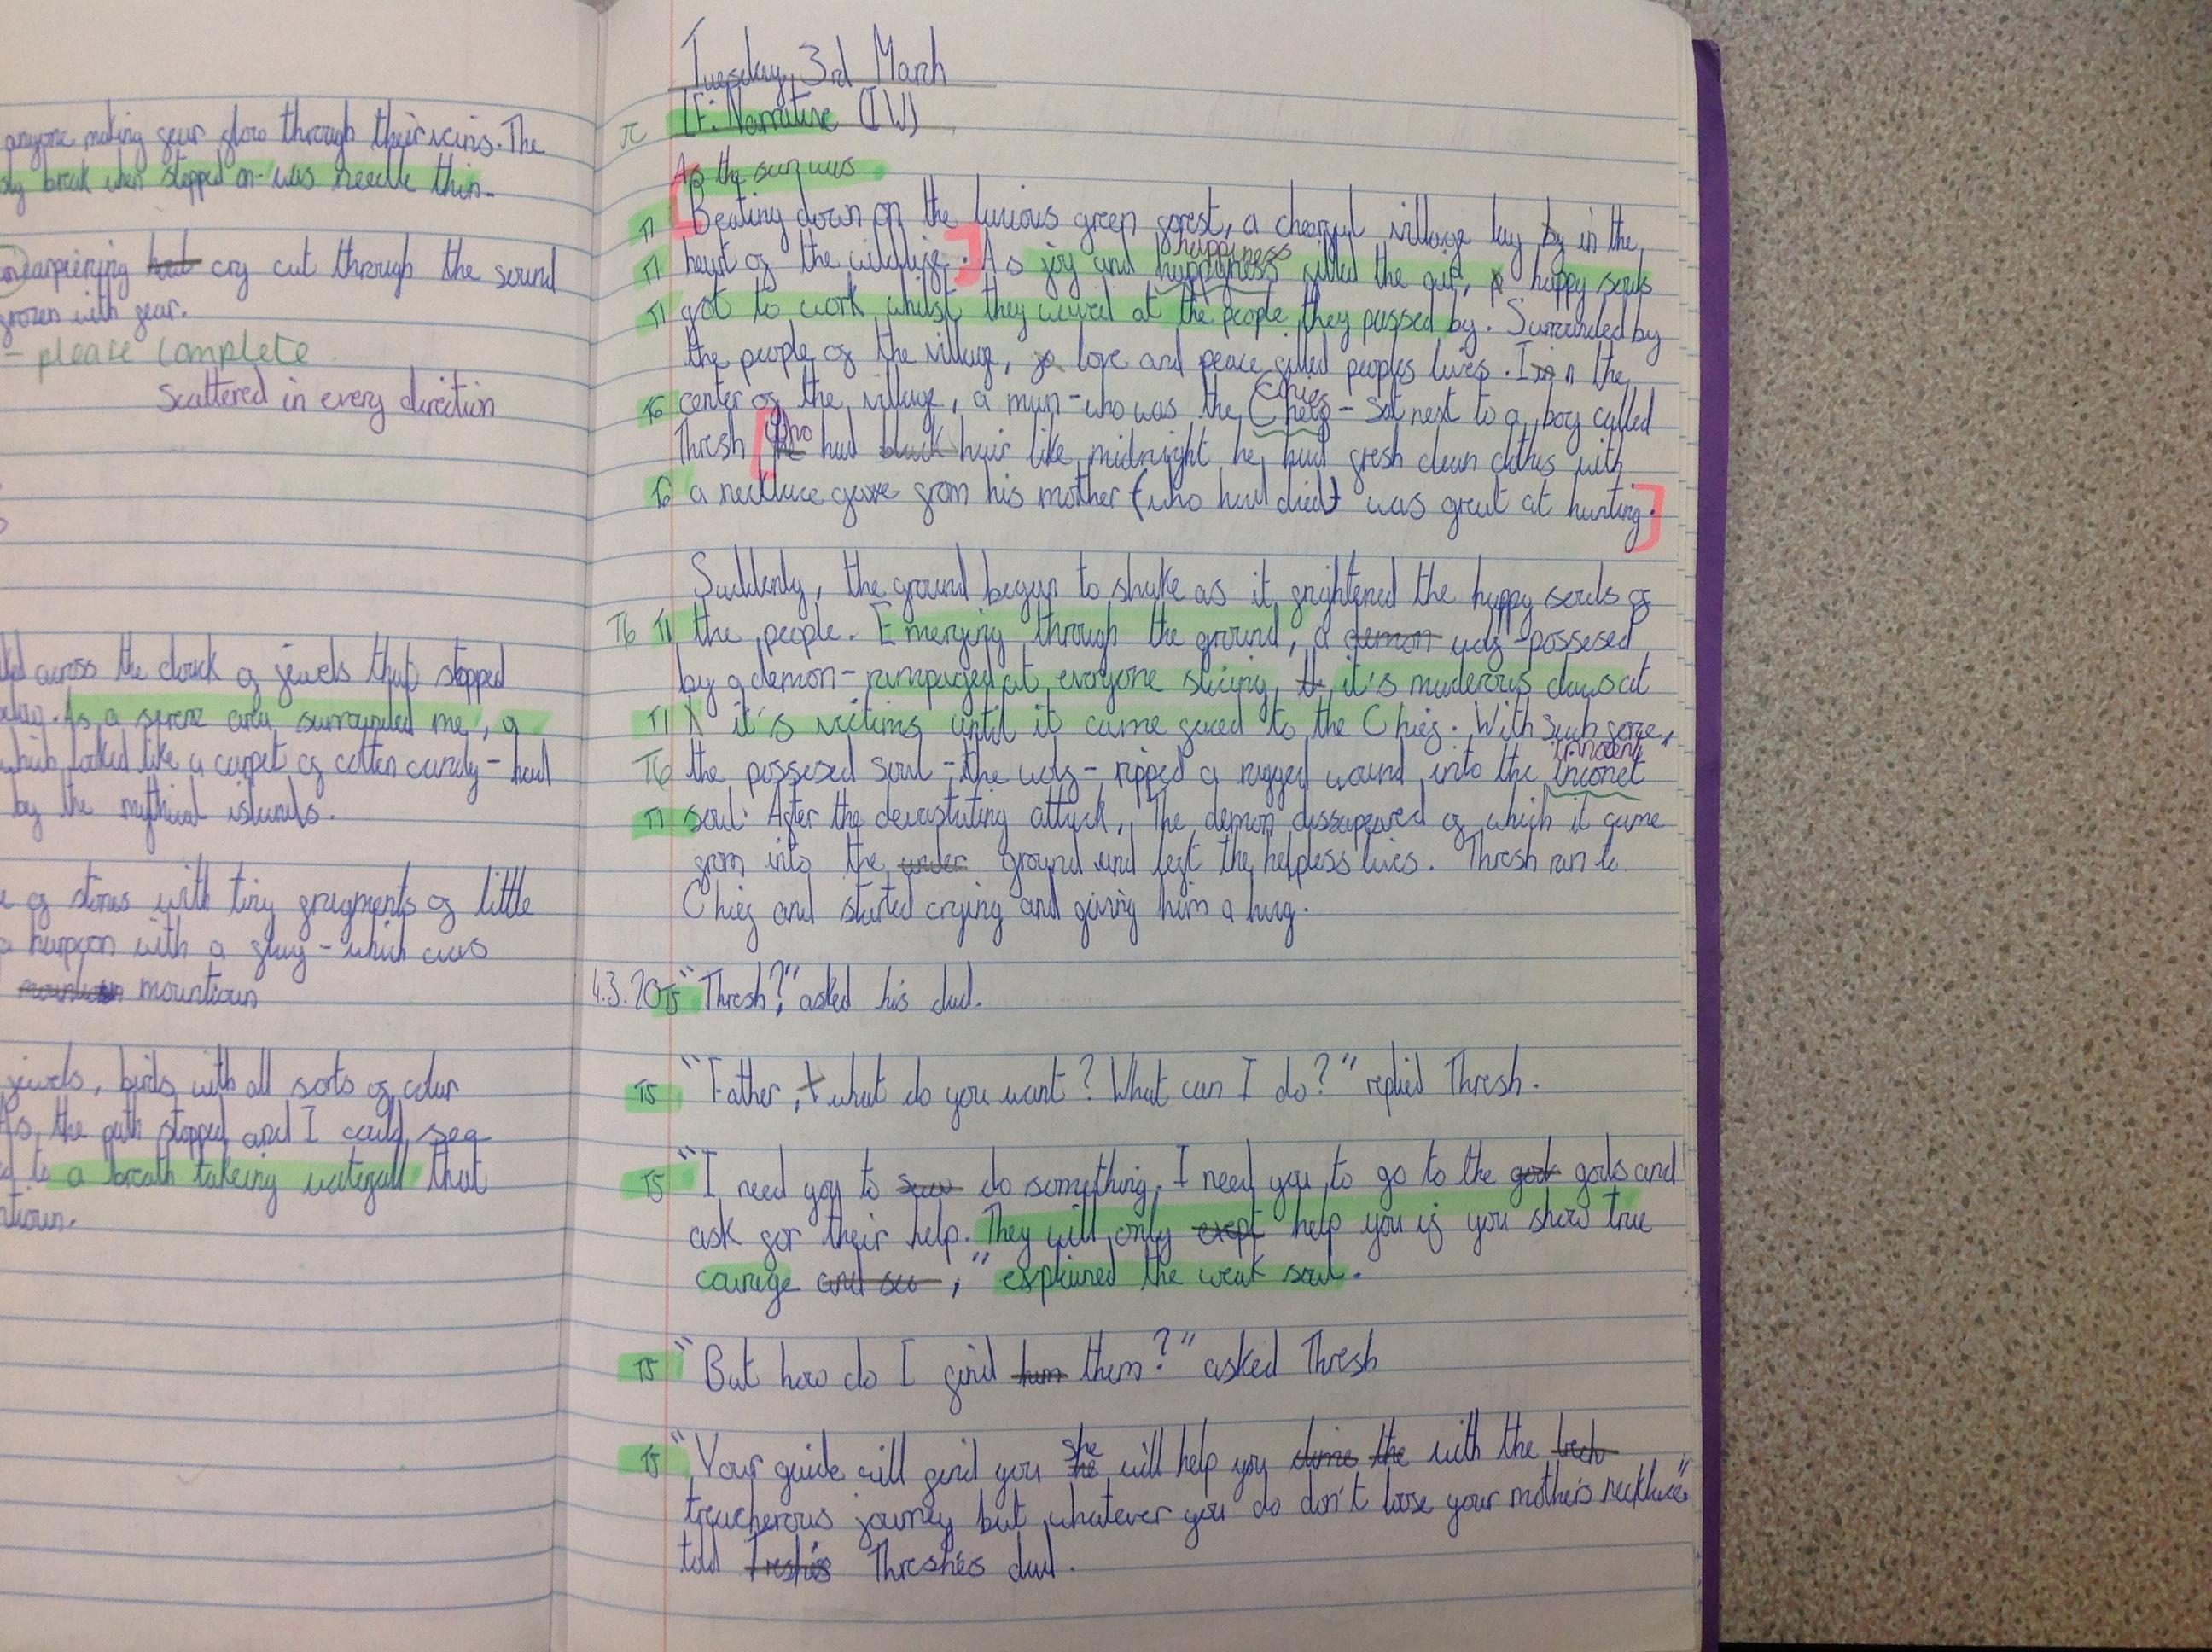 anyone making fear flow through their veins. The
break when stepped on- was needle thin.
earpiercing cry cut through the sound
frozen with fear.
- please complete
Scattered in every direction
across the cloak of jewels that stopped
As a serene area surrounded me, a
which looked like a carpet of cotten candy - had
by the mythical islands.
of stones with tiny fragments of little
a harpoon with a - which was
mountioun
jewels, birds with all sorts of colur
As, the path stopped and I could see
to a breath takeing waterfall that
Tuesday, 3rd March
LF: Narrative (IW)
As the sun was
T1 Beating down on the lucious green forest, a cheerful village lay by in the
happiness
T1 heart of the wildlife. As joy and happyness filled the air, happy souls
T1 got to work whilst they waved at the people they passed by. Surrounded by
the people of the village, love and peace filled peoples lives. In the
Chief
T6 center of the village, a man - who was the Cheif - sat next to a boy called
who
Thresh he had black hair like midnight he had fresh clean clothes with
T6 a necklace gave from his mother (who had died) was great at hunting.
Suddenly, the ground began to shake as it frightened the happy souls of
T6 T1 the people. Emerging through the ground, a demon wolf - possesed
by a demon - rampaged at everyone slicing it's muderous claws at
T1 it's victims until it came faced to the Chief. With such force,
innocent
T6 the possesed soul - the wolf - ripped a ragged wound into the inconet
T1 soul. After the devastating attack, The demon dissapeared of which it came
from into the under ground and left the helpless lives. Thresh ran to
Chief and started crying and giving him a hug.
4.3.20 T5 "Thresh?" asked his dad.
T5 "Father, what do you want? What can I do?" replied Thresh.
T5 "I need you to do something. I need you to go to the gods and
ask for their help. They will only exept help you if you show true
courage ," explained the weak soul.
T5 "But how do I find them?" asked Thresh
she
T5 "Your guide will find you he will help you with the
treacherous journey but whatever you do don't loose your mother's necklace"
told Thresh's dad.